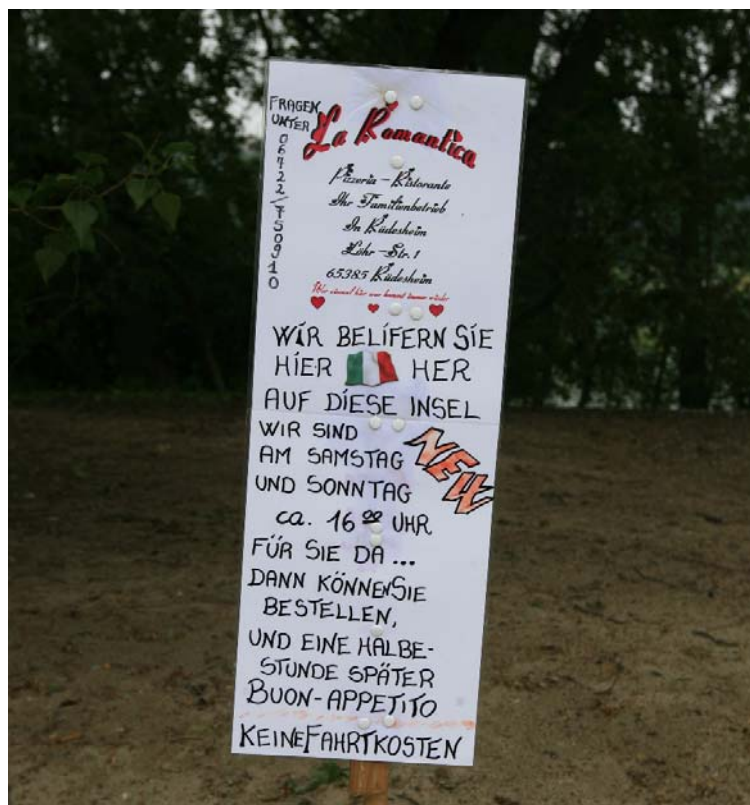 FRAGEN
UNTER
06722/750910
La Romantica
Pizzeria - Ristorante
Ihr Familienbetrieb
In Rüdesheim
Löhr - Str. 1
65385 Rüdesheim
Wer einmal hier war kommt immer wieder
WIR BELIFERN SIE
HIER HER
AUF DIESE INSEL
WIR SIND
AM SAMSTAG
UND SONNTAG
NEW
ca. 16 00 UHR
FÜR SIE DA ...
DANN KÖNNEN SIE
BESTELLEN,
UND EINE HALBE-
STUNDE SPÄTER
BUON-APPETITO
KEINE FAHRTKOSTEN